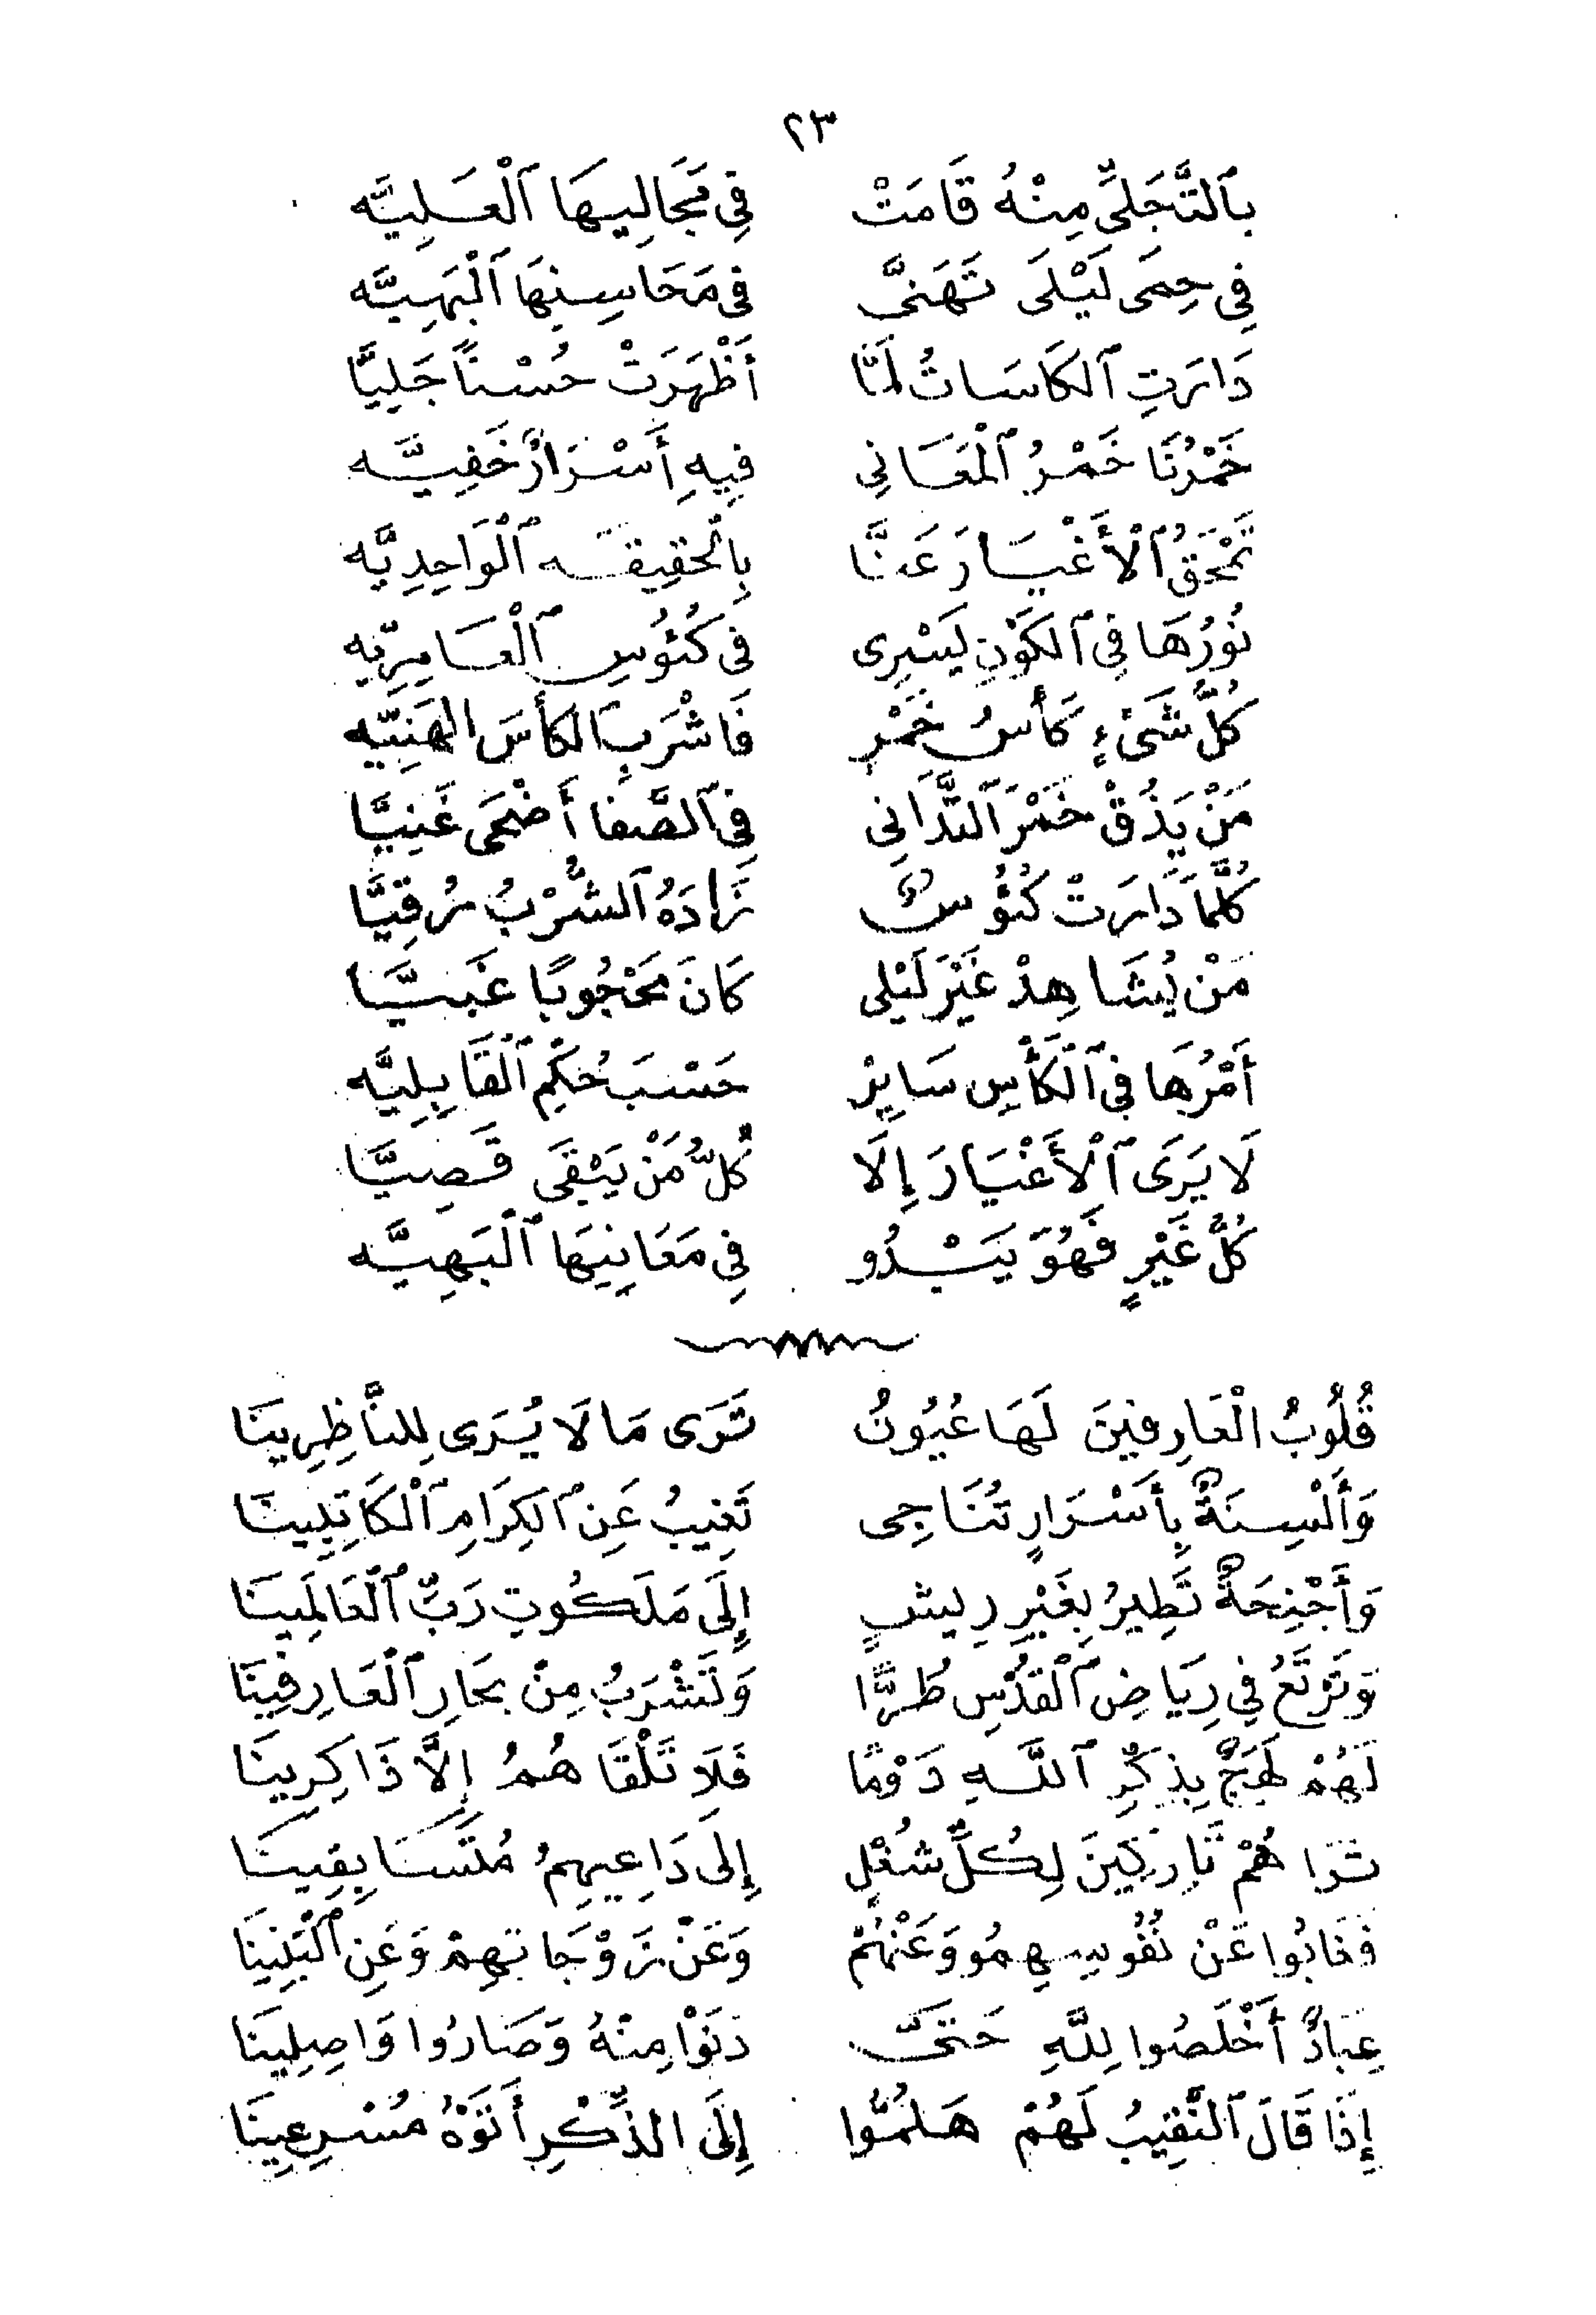 ٢٣
بِٱلتَّجَلِّي مِنْهُ قَامَتْ فِي مَجَالِيهَا ٱلْعَلِيَّه
فِي حِمَى لَيْلَى تَهَنَّى فِي مَحَاسِنِهَا ٱلْبَهِيَّه
دَارَتِ ٱلكَاسَاتُ لَمَّا أَظْهَرَتْ حُسْنًا جَلِيَّا
خَمْرُنَا خَمْرُ ٱلْمَعَانِي فِيهِ أَسْرَارٌ خَفِيَّه
تَمْحَقُ ٱلْأَغْيَارَ عَنَّا بِالْحَقِيقَه ٱلْوَاحِدِيَّه
نُورُهَا فِي ٱلكَوْنِ يَسْرِى فِي كُئُوسِ ٱلْعَامِرِيِّه
كُلُّ شَىْءٍ كَأْسُ خَمْرٍ فَاشْرَبِ الكَأسَ الهَنِيِّه
مَنْ يَذُقْ خَمْرَ ٱلتَّدَانِي فِي ٱلصَّفا أَضْحَى غَنِيَّا
كُلَّمَا دَارَتْ كُئُوسٌ زَادَهُ ٱلشُّرْبُ رُقِيَّا
مَنْ يُشَاهِدْ غَيْرَ لَيْلى كَانَ مَحْجُوبًا غَبِيَّا
أَمْرُهَا فِي ٱلْكَأْسِ سَايِرْ حَسْبَ حُكْمِ ٱلْقَابِلِيَّه
لَا يَرَى ٱلْأَغْيَارَ إِلَّا كُلُّ مَنْ يَبْقَى قَصِيَّا
كُلُّ غَيْرٍ فَهُوَ يَبْدُو فِي مَعَانِيَهَا ٱلْبَهِيَّه
قُلُوبُ الْعَارِفِينَ لَهَا عُيُونُ تَرَى مَا لَا يُرَى لِلنَّاظِرِينَا
وَأَلْسِنَةٌ بِأَسْرَارٍ تُنَاجِى تَغِيبُ عَنِ ٱلكِرَامِ ٱلْكَاتِبِينَا
وَأَجْنِحَةٌ تَطِيرُ بِغَيْرِ رِيشٍ إِلَى مَلَكُوتِ رَبِّ ٱلْعَالَمِينَا
وَتَرْتَعُ فِي رِيَاضِ ٱلْقُدْسِ طُرًّا وَتَشْرَبُ مِنْ بِحَارِ ٱلْعَارِفِينَا
لَهُمْ لَهَجٌ بِذِكْرِ ٱللَّهِ دَوْمًا فَلَا تَلْقَاهُمُ إِلَّا ذَاكِرِينَا
تَرَاهُمْ تَارِكِينَ لِكُلِّ شُغْلٍ إِلَى دَاعِيهِمُ مُتَسَابِقِينَا
فَغَابُوا عَنْ نُفُوسِهِمُو وَعَنْهُمْ وَعَنْ زَوْجَاتِهِمْ وَعَنِ ٱلْبَنِينَا
عِبَادٌ أَخْلَصُوا لِلَّهِ حَتَّى دَنَوْا مِنْهُ وَصَارُوا وَاصِلِينَا
إِذَا قَالَ ٱلنَّقِيبُ لَهُمْ هَلُمُّوا إِلَى الذِّكْرِ أَتَوْهُ مُسْرِعِينَا